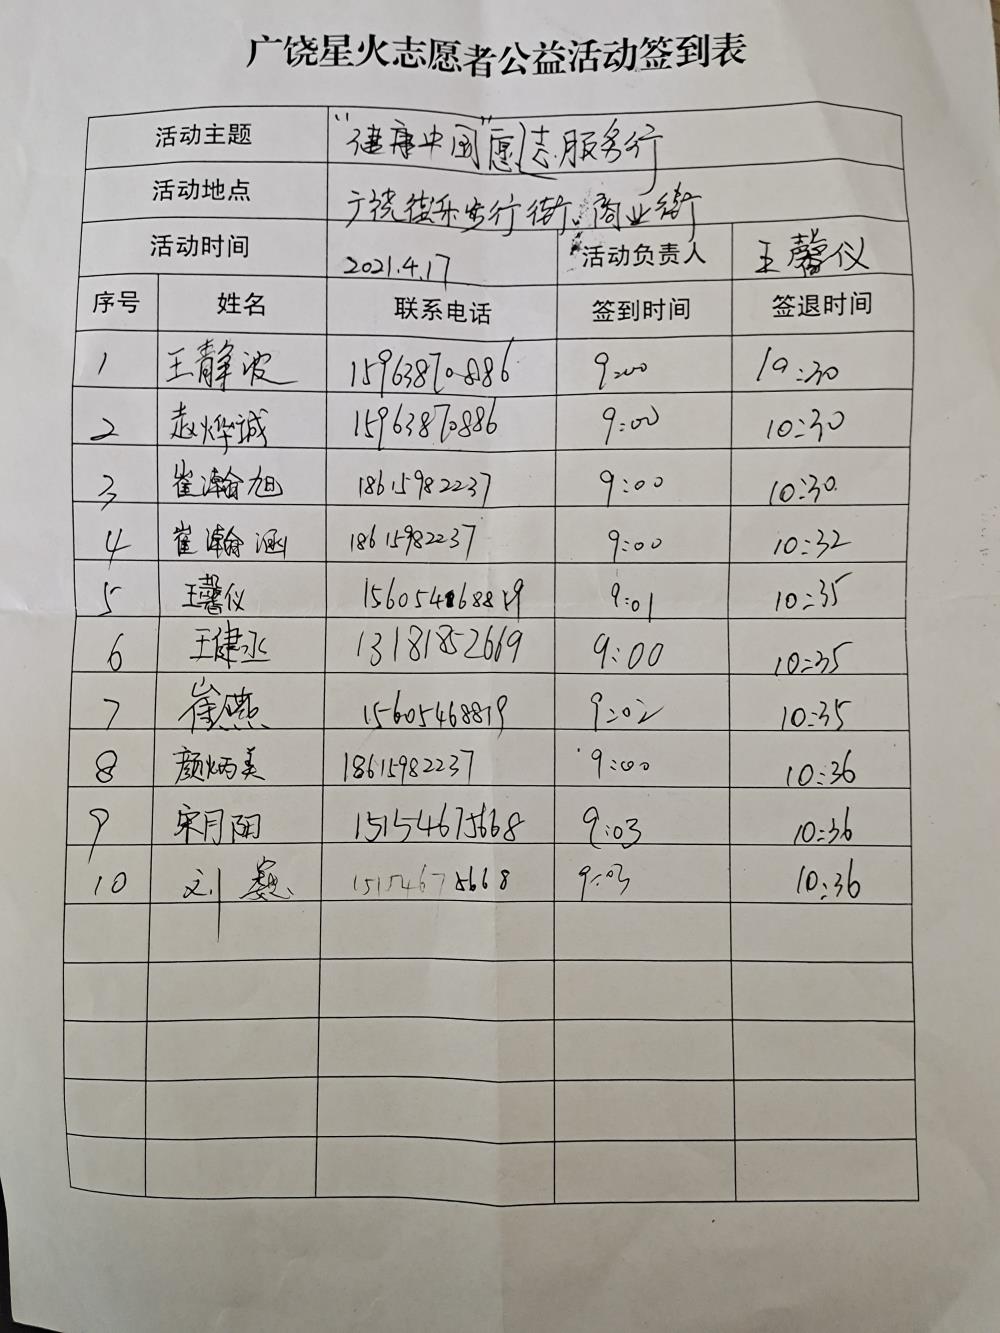 广饶星火志愿者公益活动签到表
活动主题 "健康中国"愿志服务行
活动地点 广饶街乐步行街、商业街
活动时间 2021.4.17 活动负责人 王馨仪
序号 姓名 联系电话 签到时间 签退时间
1 王静波 15963870886 9:00 10:30
2 赵烨诚 15963870886 9:00 10:30
3 崔瀚旭 18615982237 9:00 10:30
4 崔瀚涵 18615982237 9:00 10:32
5 王馨仪 15605468819 9:01 10:35
6 王健丞 13181852669 9:00 10:35
7 崔燕 15605468819 9:02 10:35
8 颜炳美 18615982237 9:00 10:36
9 宋月阳 15154675668 9:03 10:36
10 刘巍 15154675668 9:03 10:36